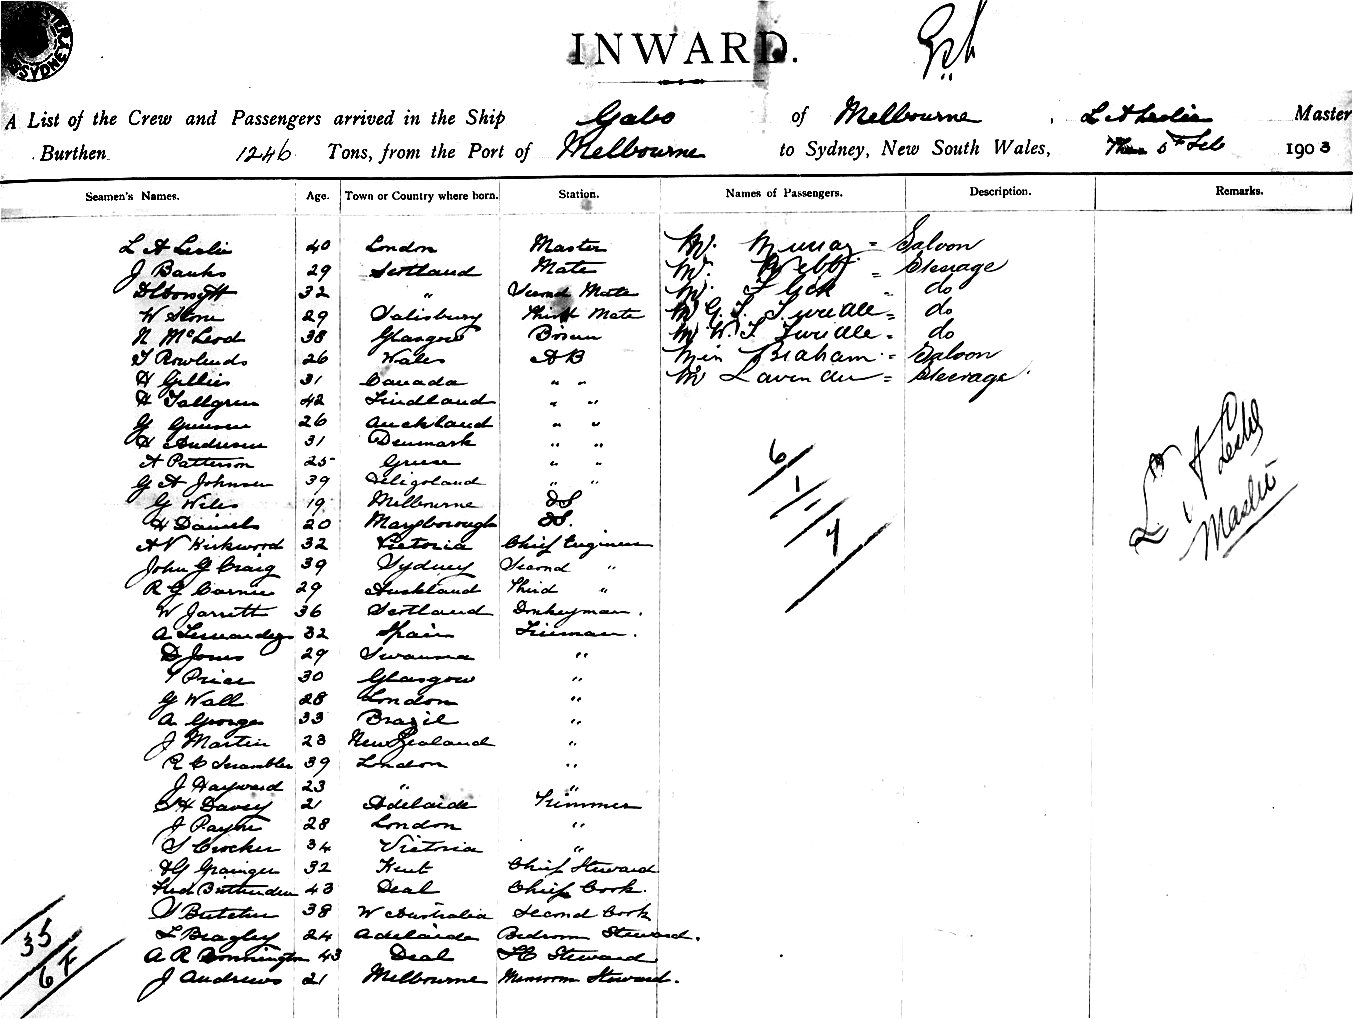 SYDNEY
INWARD.
A List of the Crew and Passengers arrived in the Ship Gabo of Melbourne, L A Leslie Master
Burthen 1246 Tons, from the Port of Melbourne to Sydney, New South Wales, 5th Feb 1903
Seamen's Names. Age. Town or Country where born. Station. Names of Passengers. Description. Remarks.
L A Leslie 40 London Master Mr. Murray = Saloon
J Banks 29 Scotland Mate Mr. Webb = Steerage
32 " Second Mate Mr. Flick " do
W Stone 29 Salisbury Third Mate Mr G. S. Twedle = do
N McLeod 38 Glasgow Bosun Mr W. S. Twedle = do
T Rowlands 26 Wales AB Miss Braham = Saloon
H Gillies 31 Canada " " Mr Lavender = Steerage
H Tallgren 42 Findland " "
G 26 Auckland " "
H Andersen 31 Denmark " "
A Patterson 25 Greese " "
G A Johnson 39 Heligoland " "
G Wiles 19 Melbourne OS
H Daniels 20 Maryborough OS.
A N Kirkwood 32 Victoria Chief Engineer
John G Craig 39 Sydney Second "
R G Carnie 29 Auckland Third "
W Jarrett 36 Scotland Donkeyman.
A Fernandez 32 Spain Fireman.
D Jones 29 Swansea "
T Price 30 Glasgow "
G Wall 28 London "
A George 33 Brazil "
J Martin 23 New Zealand "
R C Scrambler 39 London "
J Hayward 23 " "
C H Davey 21 Adelaide Trimmer
J Payne 28 London "
S Crocker 34 Victoria "
H G Grainger 32 Kent Chief Steward
Fred Bethenden 43 Deal Chief Cook.
S Butcher 38 W Australia Second Cook
L Beagley 24 Adelaide Bedroom Steward.
A R Bonnington 43 Deal FC Steward
J Andrews 21 Melbourne Messroom Steward.
6
1
1
4
L A Leslie
Master
35
6 F